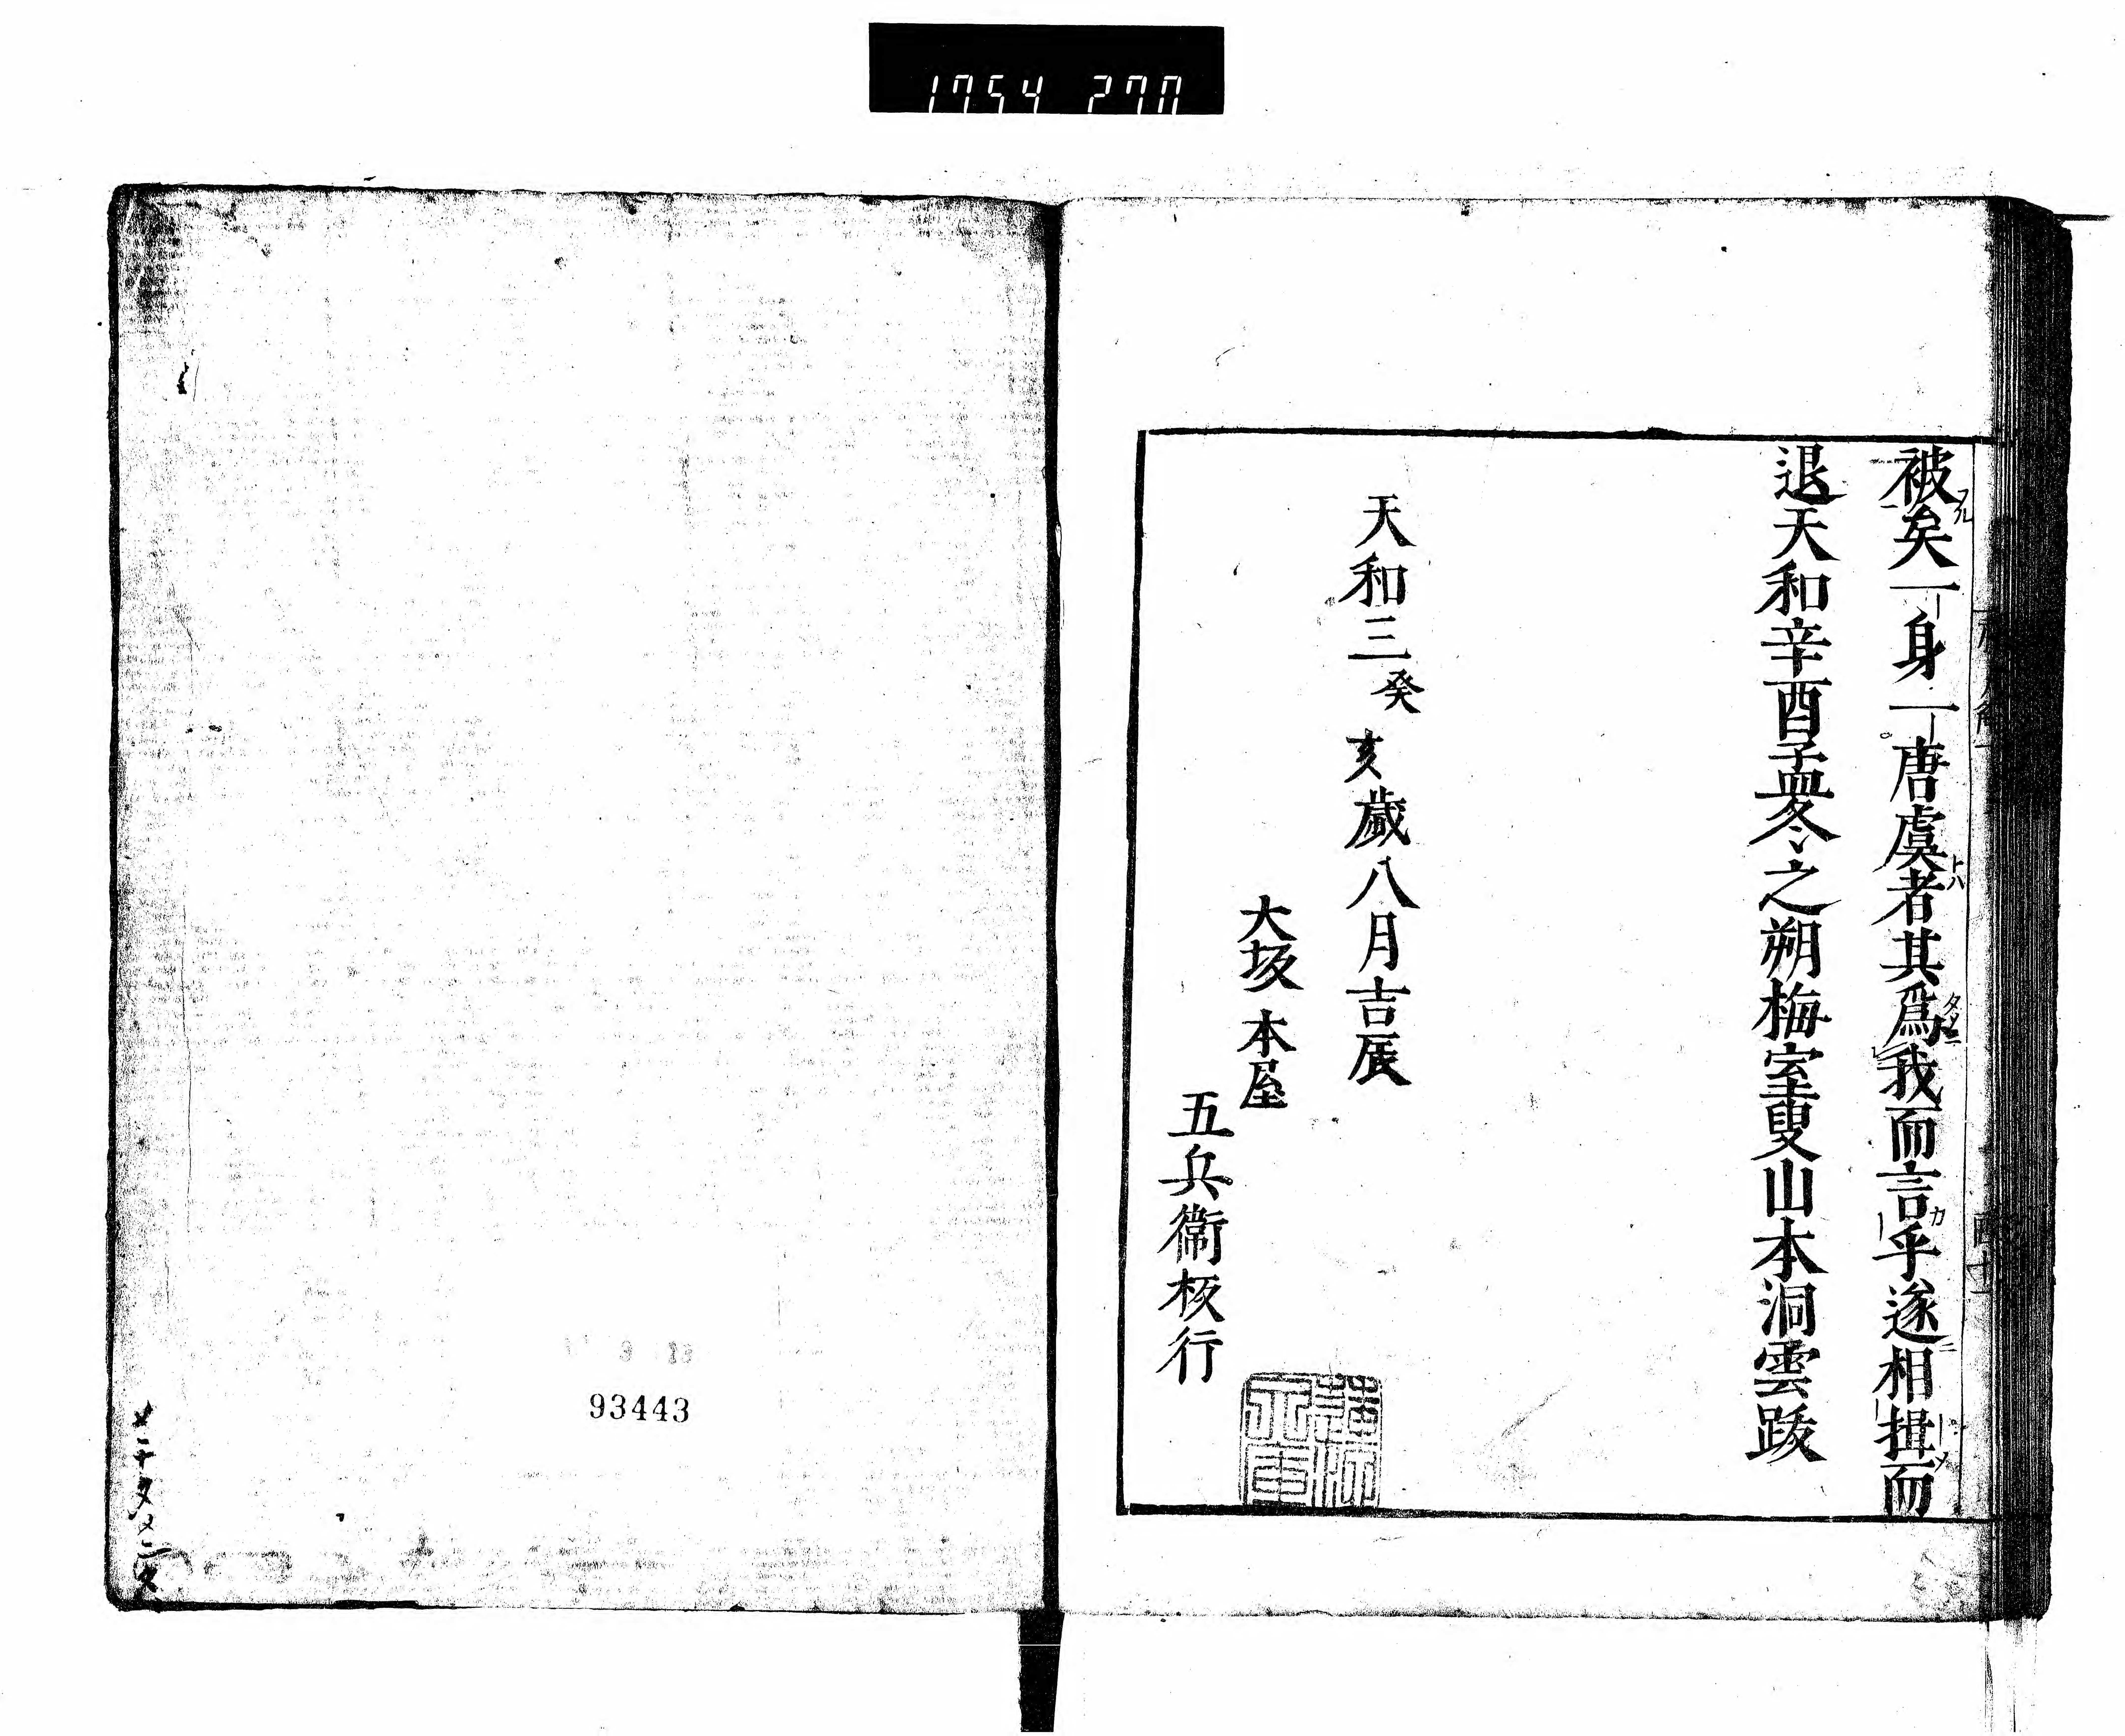 1754 270
被矣一身一唐虞者其爲我而言乎遂相揖而
退天和辛酉孟冬之朔梅室叟山本洞雲跋
天和三癸亥歲八月吉辰
大坂 本屋
五兵衞板行
93443